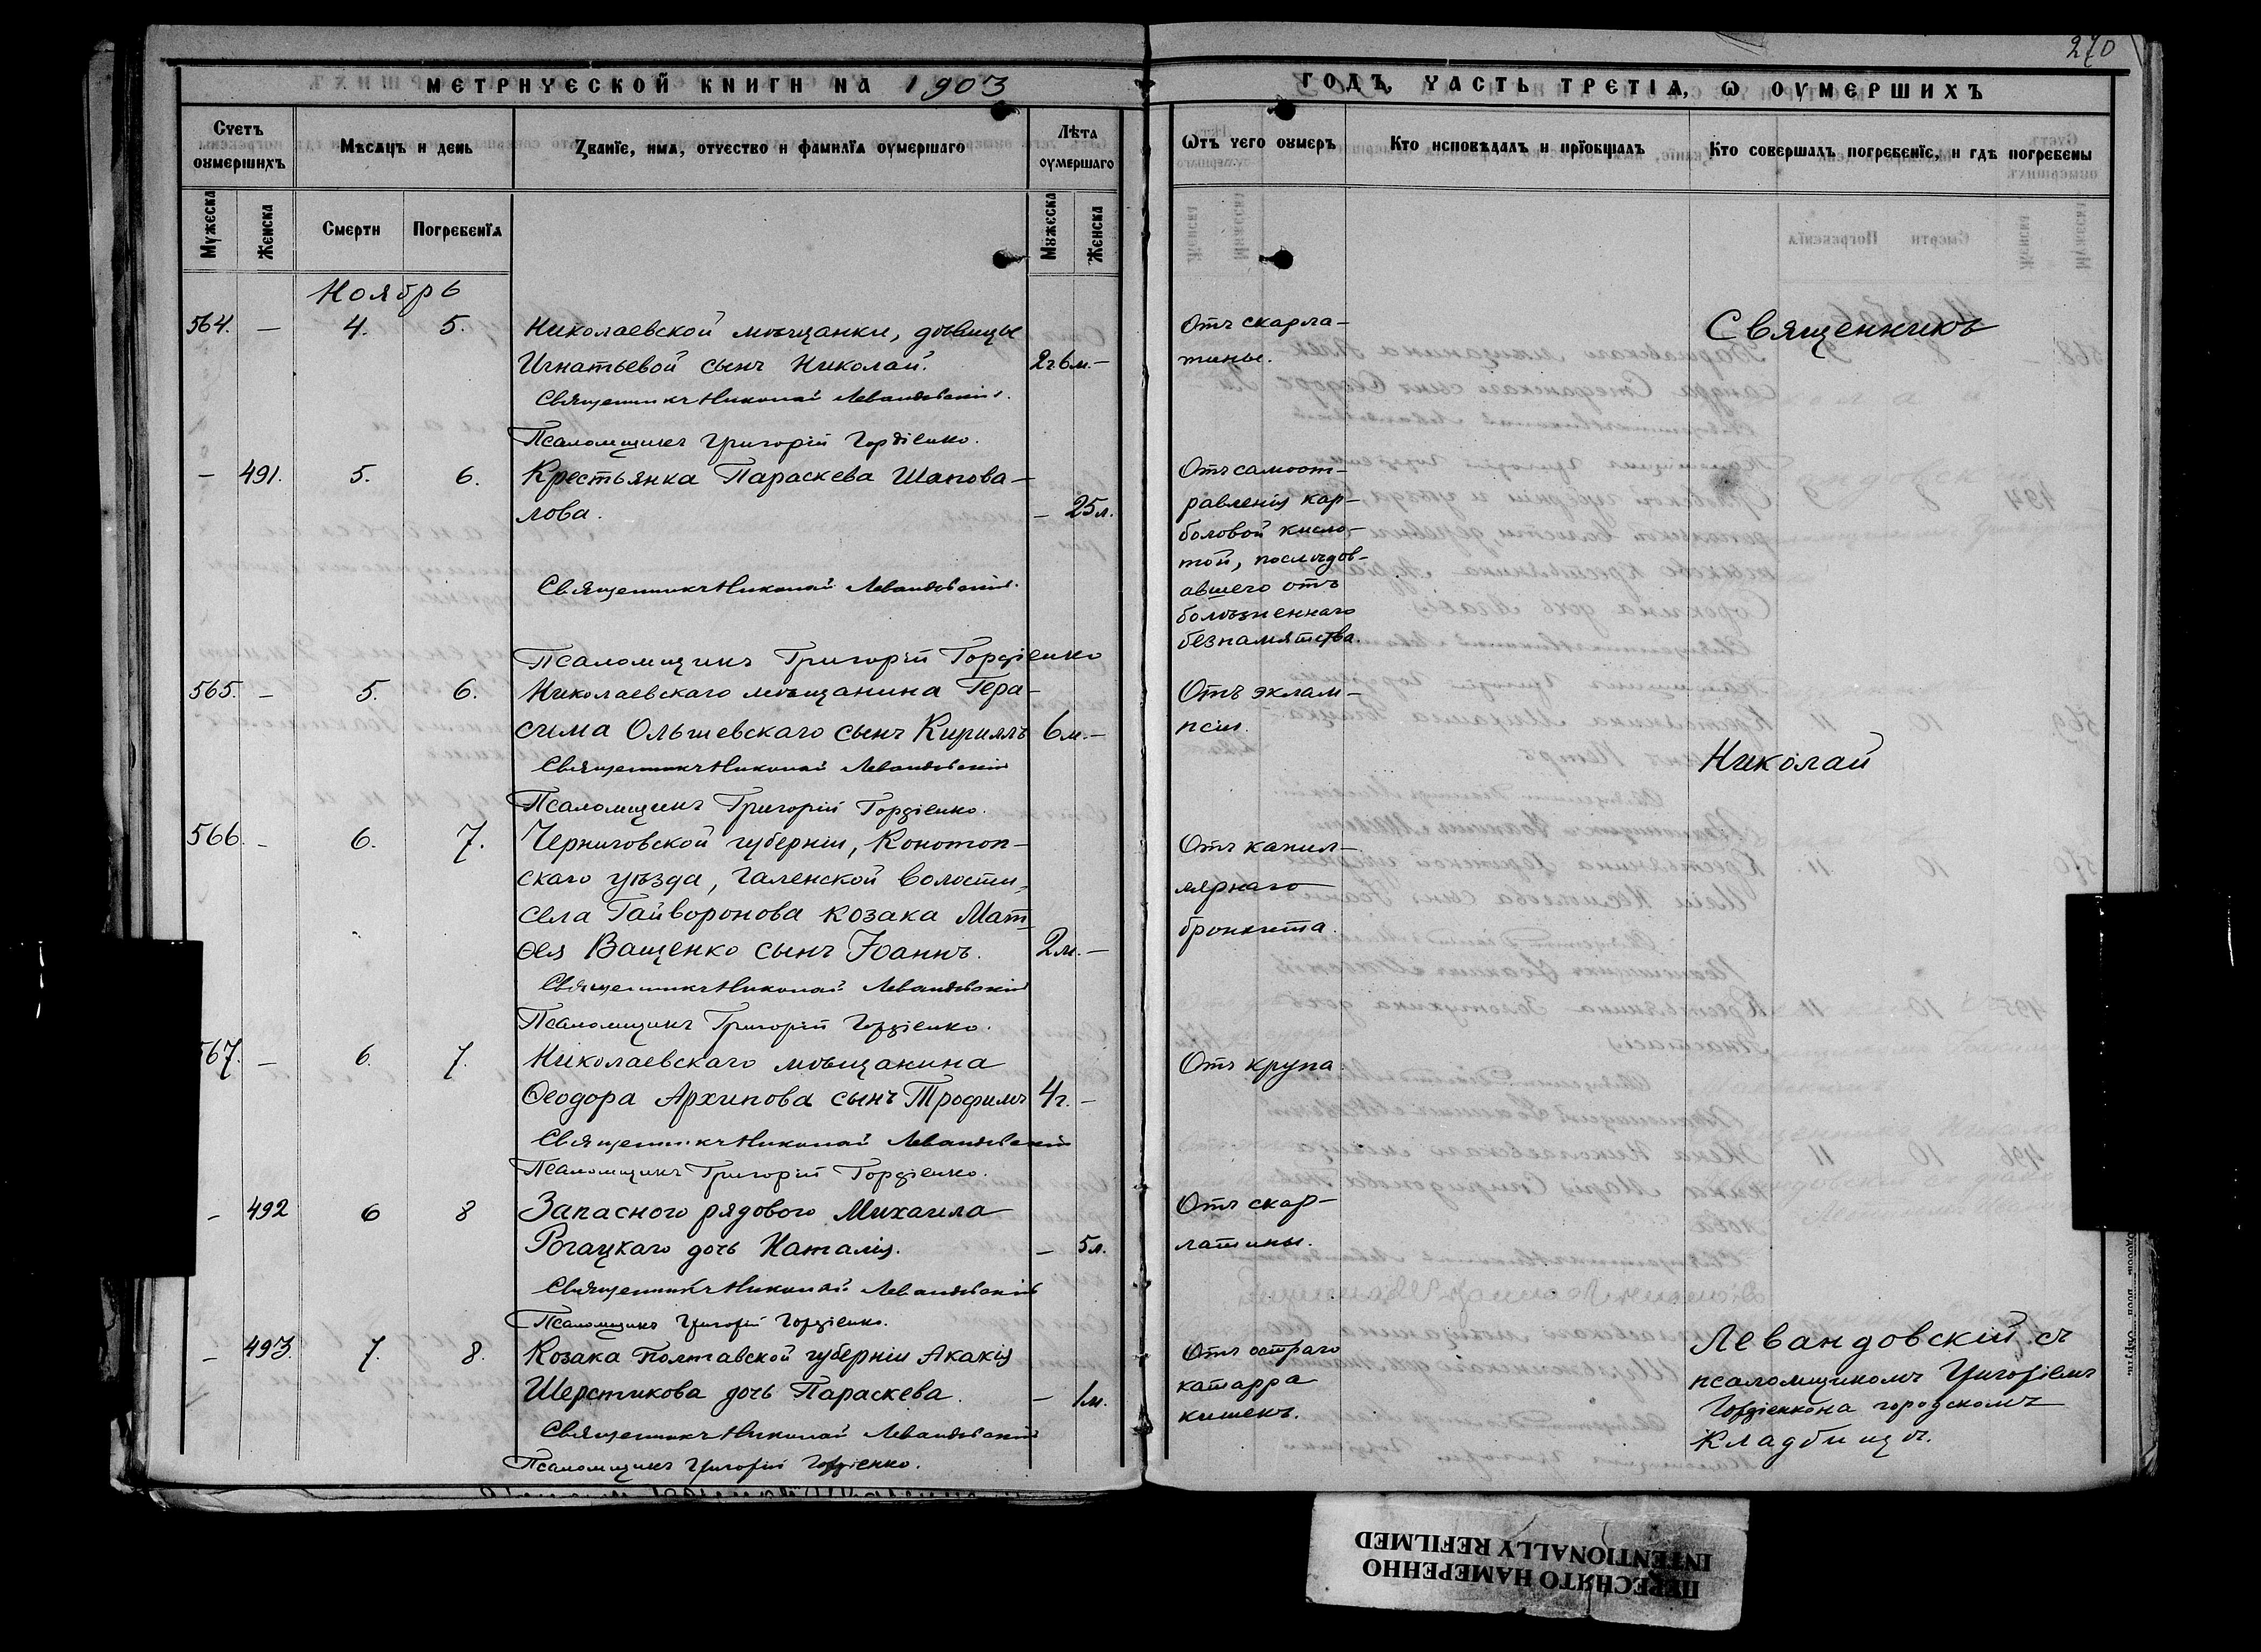 270
МЕТРИЧЕСКОЙ КНИГИ НА 1903
ГОДЪ, ЧАСТЬ ТРЕТІЯ, Ѡ ОУМЕРШИХЪ
Счетъ оумершихъ
Мѣсяцъ и день
Званїе, имя, отчество и фамилїя оумершаго
Лѣта оумершаго
Ѿтъ чего оумеръ
Кто исповѣдалъ и прїобщалъ
Кто совершалъ погребенїе, и гдѣ погребены
Мужеска
Женска
Смерти
Погребенїя
Мужеска
Женска
Ноябрь
564. — 4. 5. Николаевской мѣщанки, дѣвицы
Игнатьевой сынъ Николай. 2г.6м. —
Священникъ Николай Левандовскій.
Псаломщикъ Григорій Гордіенко.
Отъ скарла-
тины.
— 491. 5. 6. Крестьянка Параскева Шапова-
лова. — 25л.
Священникъ Николай Левандовскій.
Псаломщикъ Григорій Гордіенко
Отъ самоот-
равленія кар-
боловой кисло-
той, послѣдов-
авшего отъ
болѣзненнаго
безпамятства.
565. — 5. 6. Николаевскаго мѣщанина Гера-
сима Ольшевскаго сынъ Кириллъ 6м. —
Священникъ Николай Левандовскій
Псаломщикъ Григорій Гордіенко.
Отъ эклам-
псіи.
566. — 6. 7. Черниговской губерніи, Конотоп-
скаго уѣзда, Галенской волости,
села Гайворонова козака Мат-
ѳея Ващенко сынъ Іоаннъ. 2м. —
Священникъ Николай Левандовскій
Псаломщикъ Григорій Гордіенко.
Отъ капил-
лярнаго
бронхита.
567. — 6. 7. Николаевскаго мѣщанина
Ѳеодора Архипова сынъ Трофимъ 4г. —
Священникъ Николай Левандовскій
Псаломщикъ Григорій Гордіенко.
Отъ крупа
— 492 6 8 Запасного рядового Михаила
Рогацкаго дочь Наталія. — 5л.
Священникъ Николай Левандовскій
Псаломщикъ Григорій Гордіенко.
Отъ скар-
латины.
— 493. 7. 8. Козака Полтавской губерніи Акакія
Шерстикова дочь Параскева. — 1м.
Священникъ Николай Левандовскій
Псаломщикъ Григорій Гордіенко.
Отъ остраго
катарра
кишекъ.
Священникъ
Николай
Левандовскій съ
псаломщикомъ Григоріемъ
Гордіенко на городскомъ
кладбищѣ.
ПЕРЕСНЯТО НАМЕРЕННО
INTENTIONALLY REFILMED